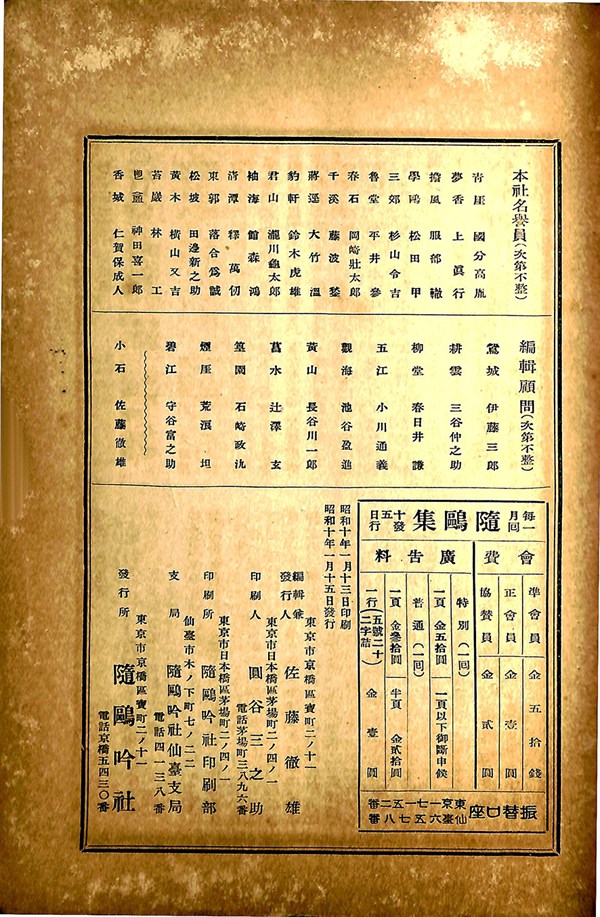 本社名譽員(次第不整)
靑厓 國分高胤
夢香 上眞行
擔風 服部轍
學鷗 松田甲
三郊 杉山令吉
魯堂 平井參
春石 岡崎壯太郎
千溪 藤波鍪
蔣逕 大竹溫
豹軒 鈴木虎雄
君山 瀧川龜太郎
袖海 館森鴻
淸潭 釋萬仞
東郭 落合爲誠
松坡 田邊新之助
黃木 橫山又吉
苔巖 林工
鬯盦 神田喜一郎
香城 仁賀保成人
編輯顧問(次第不整)
鶯城 伊藤三郎
耕雲 三谷仲之助
柳堂 春日井謙
五江 小川通義
觀海 池谷盈進
黃山 長谷川一郎
菖水 辻澤玄
篁園 石崎政汍
煙厓 荒濱坦
碧江 守谷富之助
小石 佐藤徹雄
每月一回十五日發行
隨鷗集
會費
準會員 金五拾錢
正會員 金壹圓
協贊員 金貳圓
廣告料
特別(一回)
一頁 金五拾圓 一頁以下御斷申候
普通(一回)
一頁 金參拾圓 半頁 金貳拾圓
一行(五號二十二字詰) 金壹圓
振替口座
東京一七一五二番
仙臺六五七八番
昭和十年一月十三日印刷
昭和十年一月十五日發行
東京市京橋區寶町二ノ十一
編輯兼發行人 佐藤徹雄
東京市日本橋區茅場町二ノ四ノ一
印刷人 圓谷三之助
電話茅場町三八九六番
東京市日本橋區茅場町二ノ四ノ一
印刷所 隨鷗吟社印刷部
仙臺市木ノ下町七ノ二二
支局 隨鷗吟社仙臺支局
電話四一三八番
東京市京橋區寶町二ノ十一
發行所 隨鷗吟社
電話京橋五四三〇番